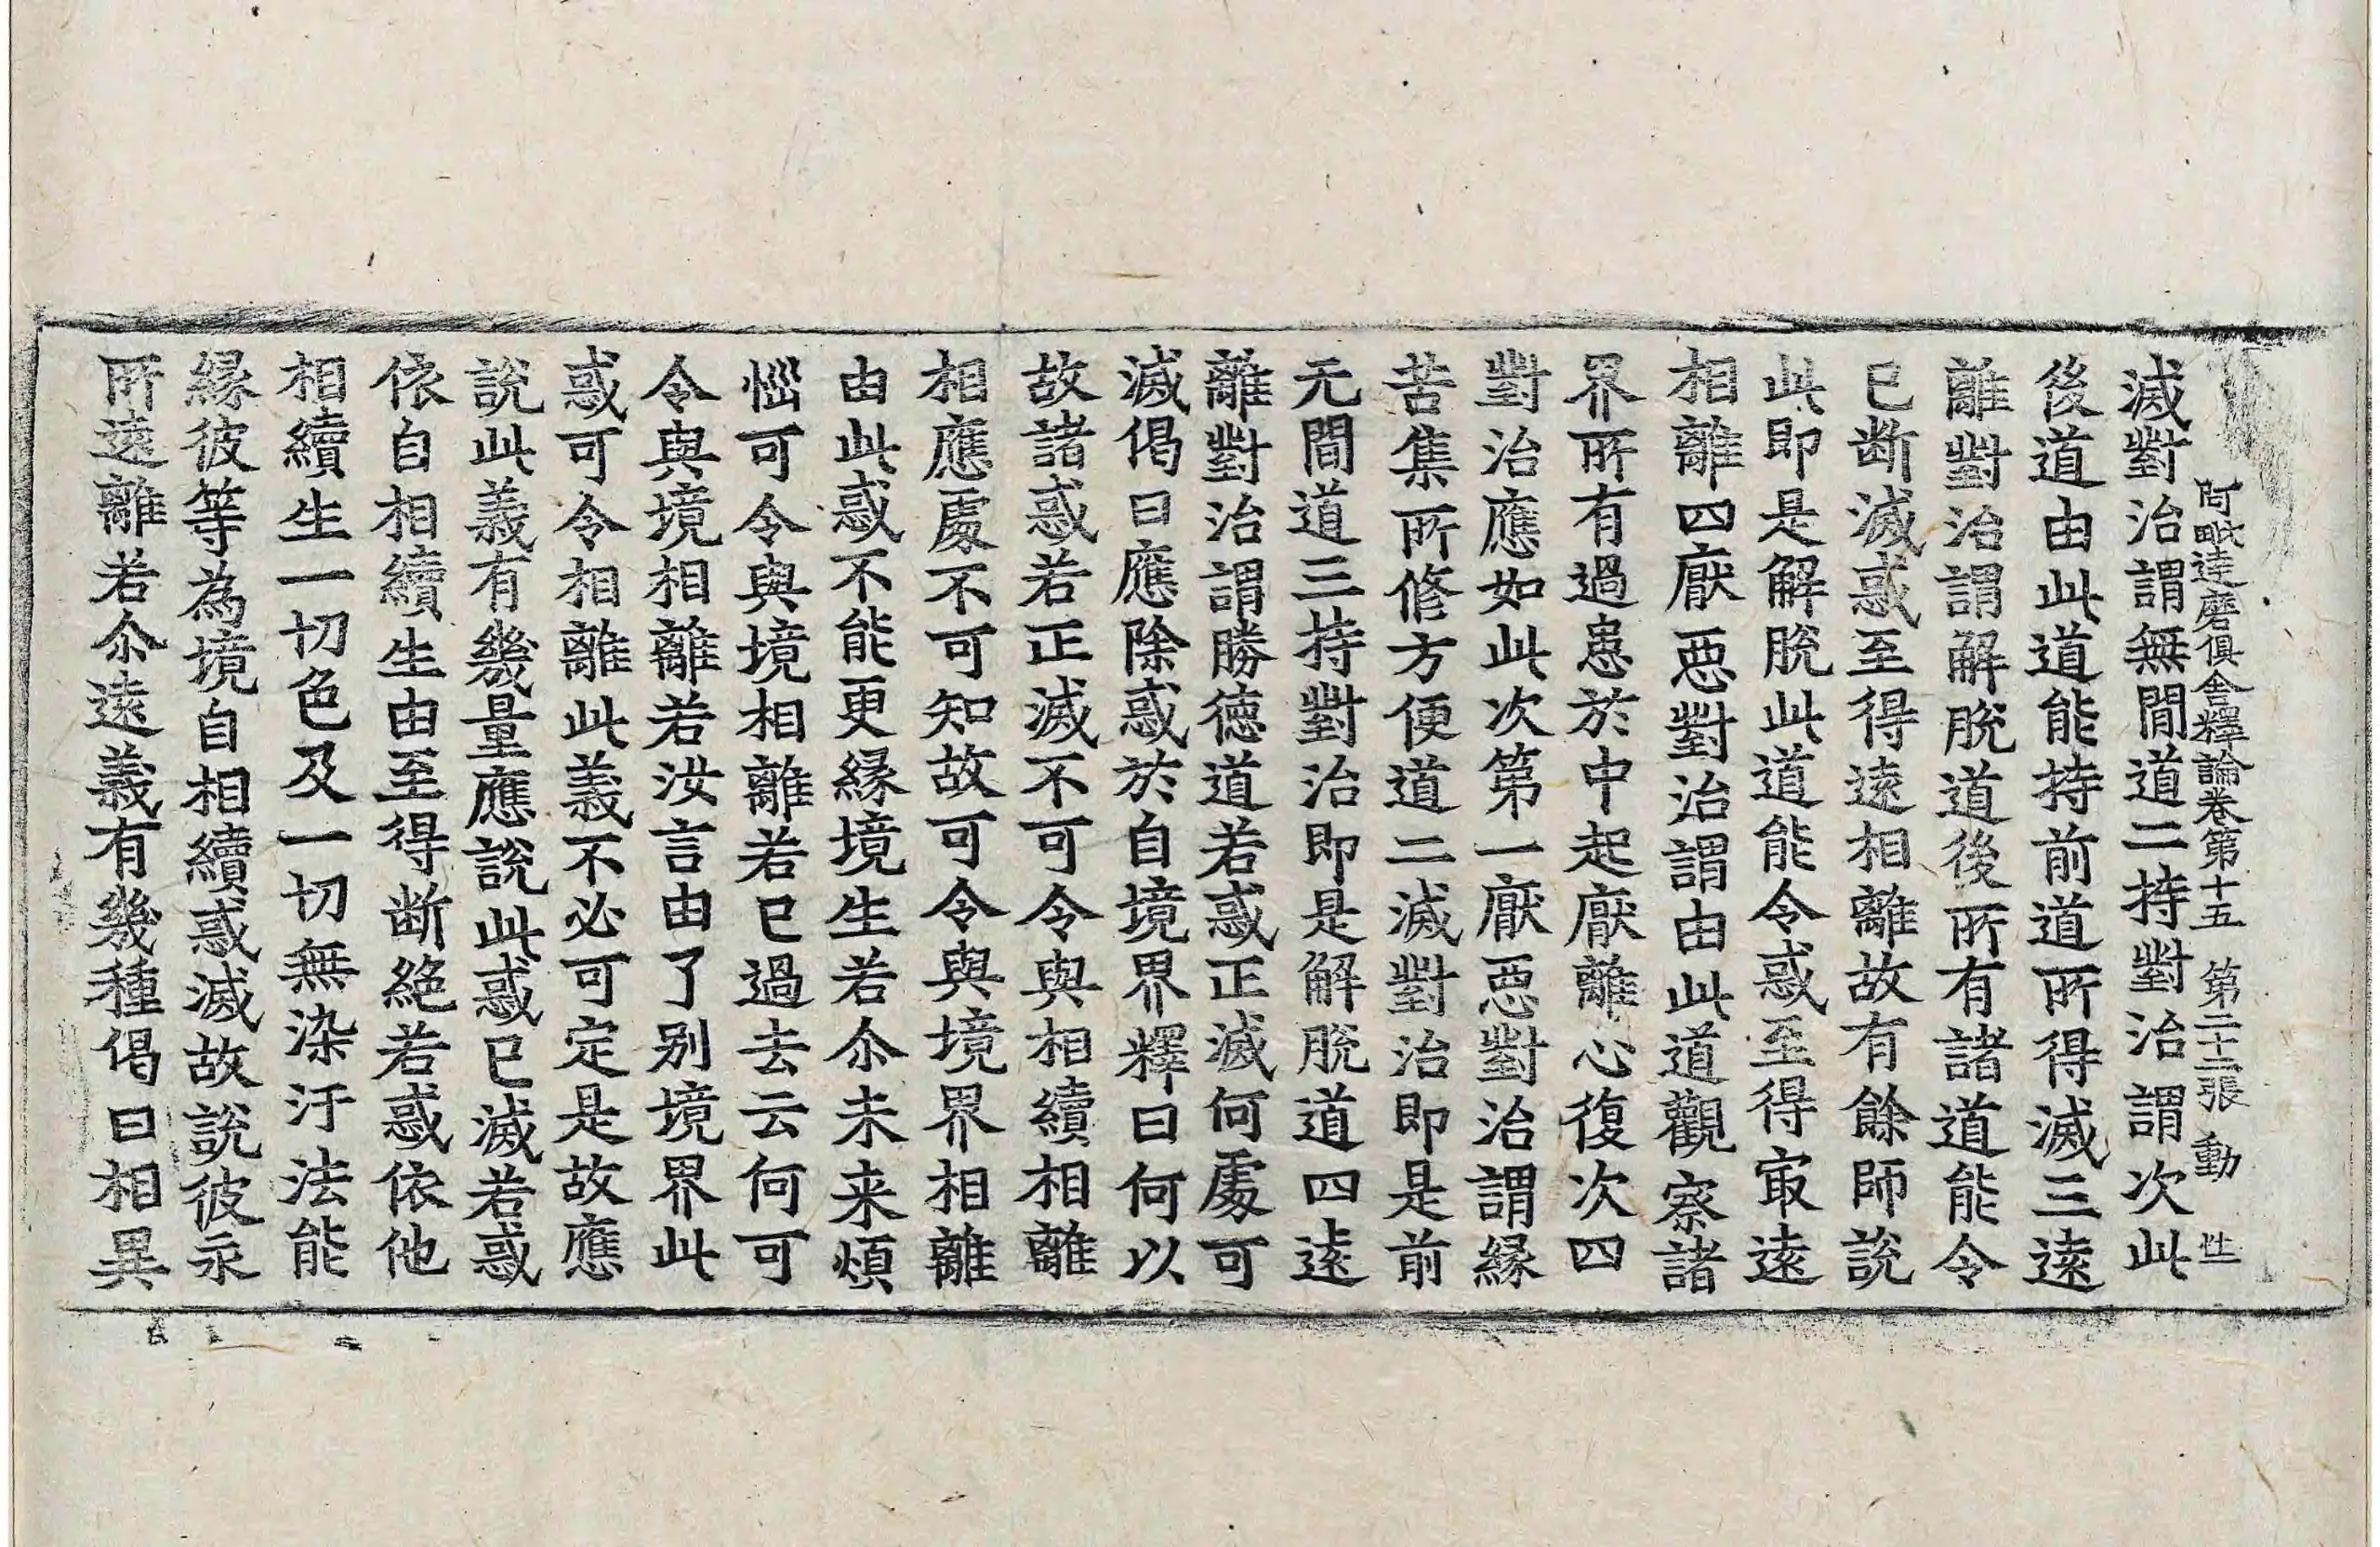 阿毗達磨俱舍釋論卷第十五 第二十二張 動
滅對治謂無間道二持對治謂次此
後道由此道能持前道所得滅三遠
離對治謂解脫道後所有諸道能令
已断滅惑至得遠相離故有餘師說
此即是解脫此道能令惑至得㝡遠
相離四厭惡對治謂由此道觀察諸
界所有過患於中起厭離心復次四
對治應如此次第一厭惡對治謂緣
苦集所修方便道二滅對治即是前
无間道三持對治即是解脫道四遠
離對治謂勝德道若惑正滅何處可
滅偈曰應除惑於自境界釋曰何以
故諸惑若正滅不可令與相續相離
相應處不可知故可令與境界相離
由此惑不能更緣境生若尒未来煩
惱可令與境相離若已過去云何可
令與境相離若汝言由了別境界此
惑可令相離此義不必可定是故應
說此義有幾量應說此惑已滅若惑
依自相續生由至得断絕若惑依他
相續生一切色及一切無染汙法能
緣彼等為境自相續惑滅故說彼永
所遠離若尒遠義有幾種偈曰相異